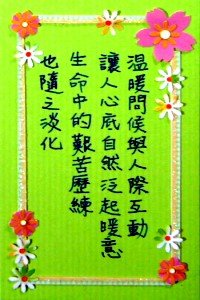 溫暖問候與人際互動
讓人心底自然泛起暖意
生命中的艱苦歷練
也隨之淡化